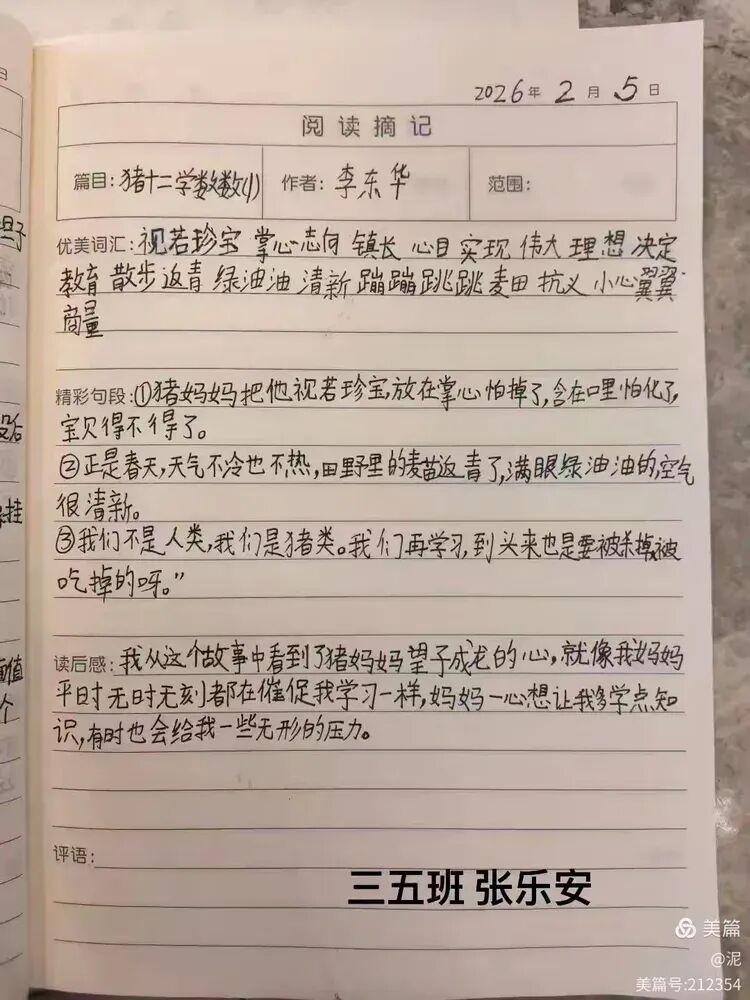 2026年2月5日
阅读摘记
篇目:猪十二学数数(1) 作者:李东华 范围:
优美词汇:视若珍宝 掌心 志向 镇长 心目 实现 伟大 理想 决定
教育 散步 返青 绿油油 清新 蹦蹦跳跳 麦田 抗议 小心翼翼
商量
精彩句段:①猪妈妈把他视若珍宝,放在掌心怕掉了,含在口里怕化了,
宝贝得不得了。
②正是春天,天气不冷也不热,田野里的麦苗返青了,满眼绿油油的,空气
很清新。
③我们不是人类,我们是猪类。我们再学习,到头来也是要被杀掉被
吃掉的呀。”
读后感:我从这个故事中看到了猪妈妈望子成龙的心,就像我妈妈
平时无时无刻都在催促我学习一样,妈妈一心想让我多学点知
识,有时也会给我一些无形的压力。
评语:
三五班 张乐安
美篇
@泥
美篇号:212354